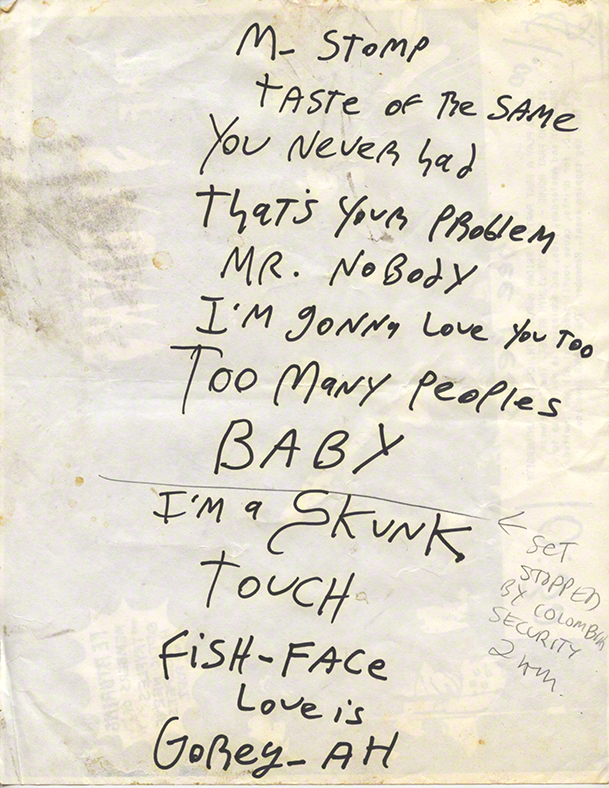 M- STOMP
TASTE OF THE SAME
YOU NEVER had
ThAT'S YOUR PROBLEM
MR. NOBODY
I'M gONNA LOVE YOU TOO
TOO MANY PEOPLES
BABY
I'M A SKUNK
TOUCH
FISH-FACE
LOVE is
GOREY-AH
← SET
STOPPED
BY COLOMBIA
SECURITY
2 AM.